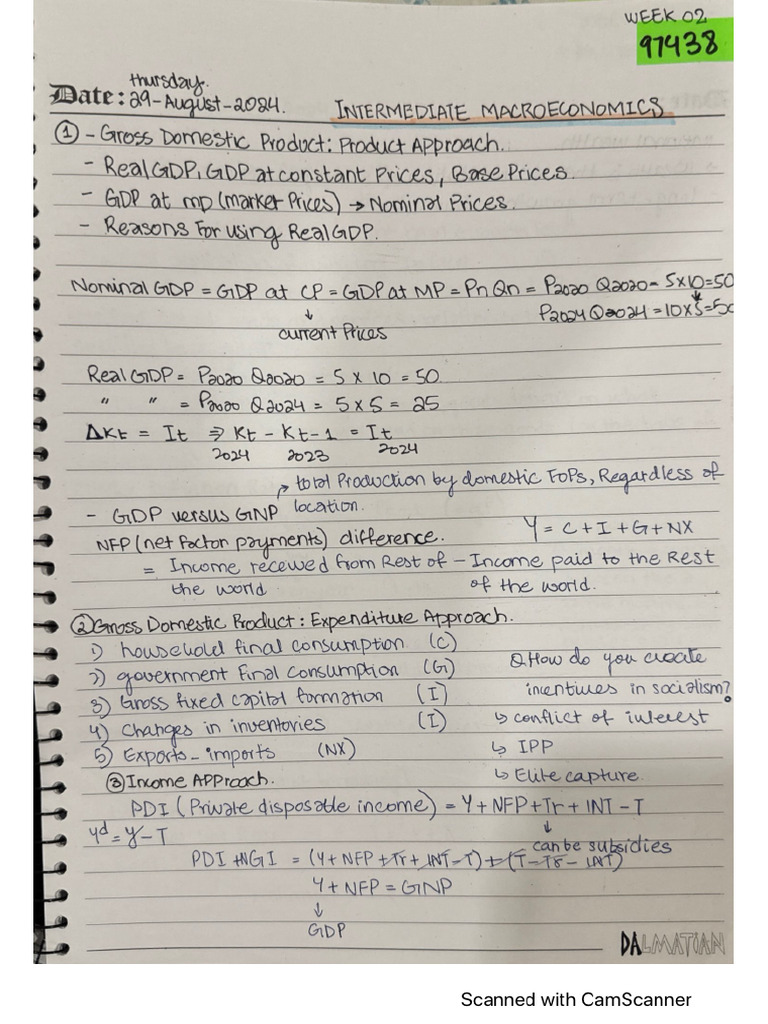 WEEK 02
97438
thursday.
Date: 29-August-2024. INTERMEDIATE MACROECONOMICS
① - Gross Domestic Product: Product Approach.
- Real GDP, GDP at constant Prices, Base Prices.
- GDP at mp (market Prices) → Nominal Prices.
- Reasons For using Real GDP.
Nominal GDP = GDP at CP = GDP at MP = Pn Qn = P2020 Q2020 = 5x10=50
↓ current Prices
P2024 Q2024 = 10x5=50
Real GDP = P2020 Q2020 = 5 x 10 = 50
" " = P2020 Q2024 = 5 x 5 = 25
ΔKt = It ⇒ Kt - Kt-1 = It
2024 2023 2024
→ total Production by domestic FOPs, Regardless of
- GDP versus GNP location.
NFP (net factor payments) difference. Y = C + I + G + NX
= Income received from Rest of - Income paid to the Rest
the world of the world.
② Gross Domestic Product: Expenditure Approach.
1) household final consumption (C)
2) government final consumption (G)
3) Gross fixed capital formation (I)
4) Changes in inventories (I)
5) Exports - imports (NX)
Q How do you create
incentives in socialism?
↳ conflict of interest
↳ IPP
↳ Elite capture.
③ Income Approach.
PDI (Private disposable income) = Y + NFP + Tr + INT - T
↓
can be subsidies
yd = y - T
PDI + NGI = (Y + NFP + Tr + INT - T) + (T - Tr - INT)
Y + NFP = GNP
↓
GDP
DALMATIAN
Scanned with CamScanner